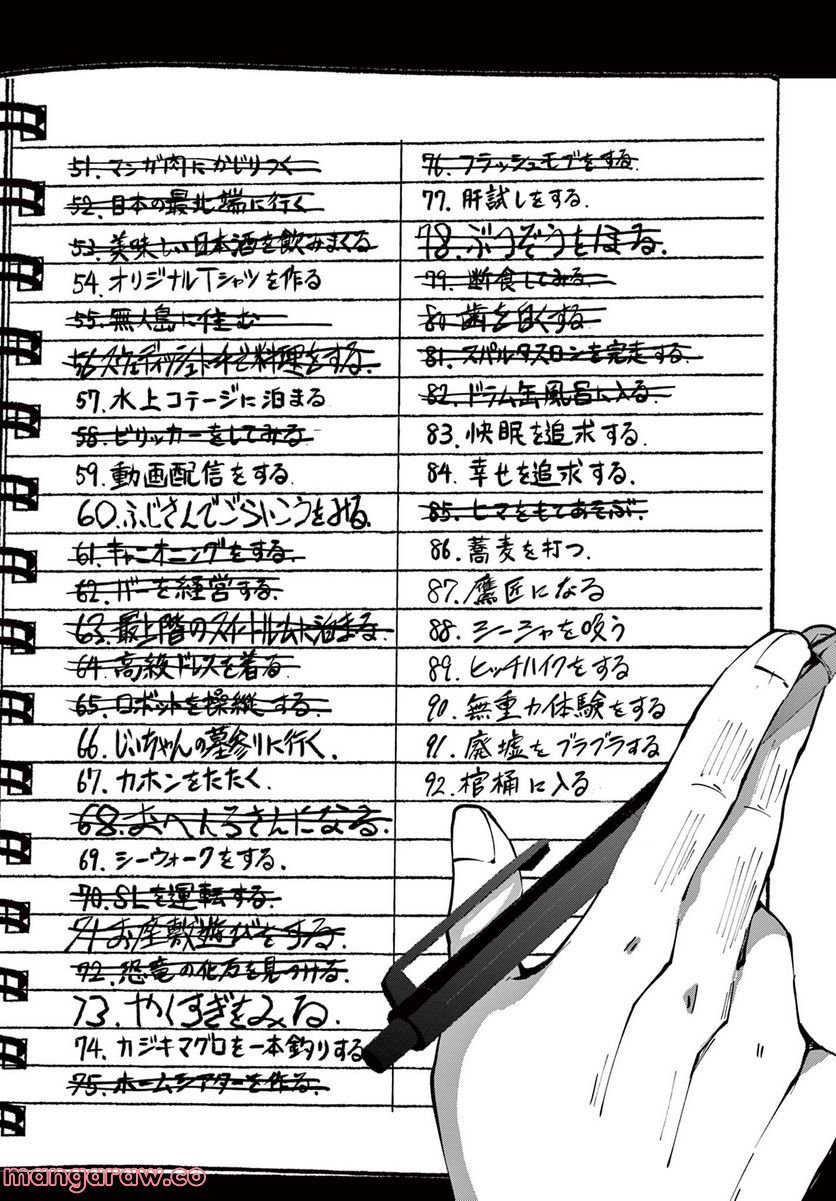 51. マンガ肉にかじりつく
52. 日本の最北端に行く
53. 美味しい日本酒を飲みまくる
54. オリジナルTシャツを作る
55. 無人島に住む
56. スウェディッシュトーチで料理をする.
57. 水上コテージに泊まる
58. ビリッカーをしてみる
59. 動画配信をする.
60. ふじさんでごらいこうをみる.
61. キャニオニングをする.
62. バーを経営する.
63. 最上階のスイートルームに泊まる.
64. 高級ドレスを着る
65. ロボットを操縦する.
66. じいちゃんの墓参りに行く.
67. カホンをたたく.
68. おへんろさんになる.
69. シーウォークをする.
70. SLを運転する.
71. お座敷遊びをする.
72. 恐竜の化石を見つける.
73. やくすぎをみる.
74. カジキマグロを一本釣りする
75. ホームシアターを作る.
76. フラッシュモブをする
77. 肝試しをする.
78. ぶつぞうをほる.
79. 断食してみる.
80. 歯を白くする
81. スパルタスロンを完走する.
82. ドラム缶風呂に入る.
83. 快眠を追求する.
84. 幸せを追求する.
85. ヒマをもてあそぶ.
86. 蕎麦を打つ.
87. 鷹匠になる
88. シーシャを吸う
89. ヒッチハイクをする
90. 無重力体験をする
91. 廃墟をブラブラする
92. 棺桶に入る
mangaraw.co